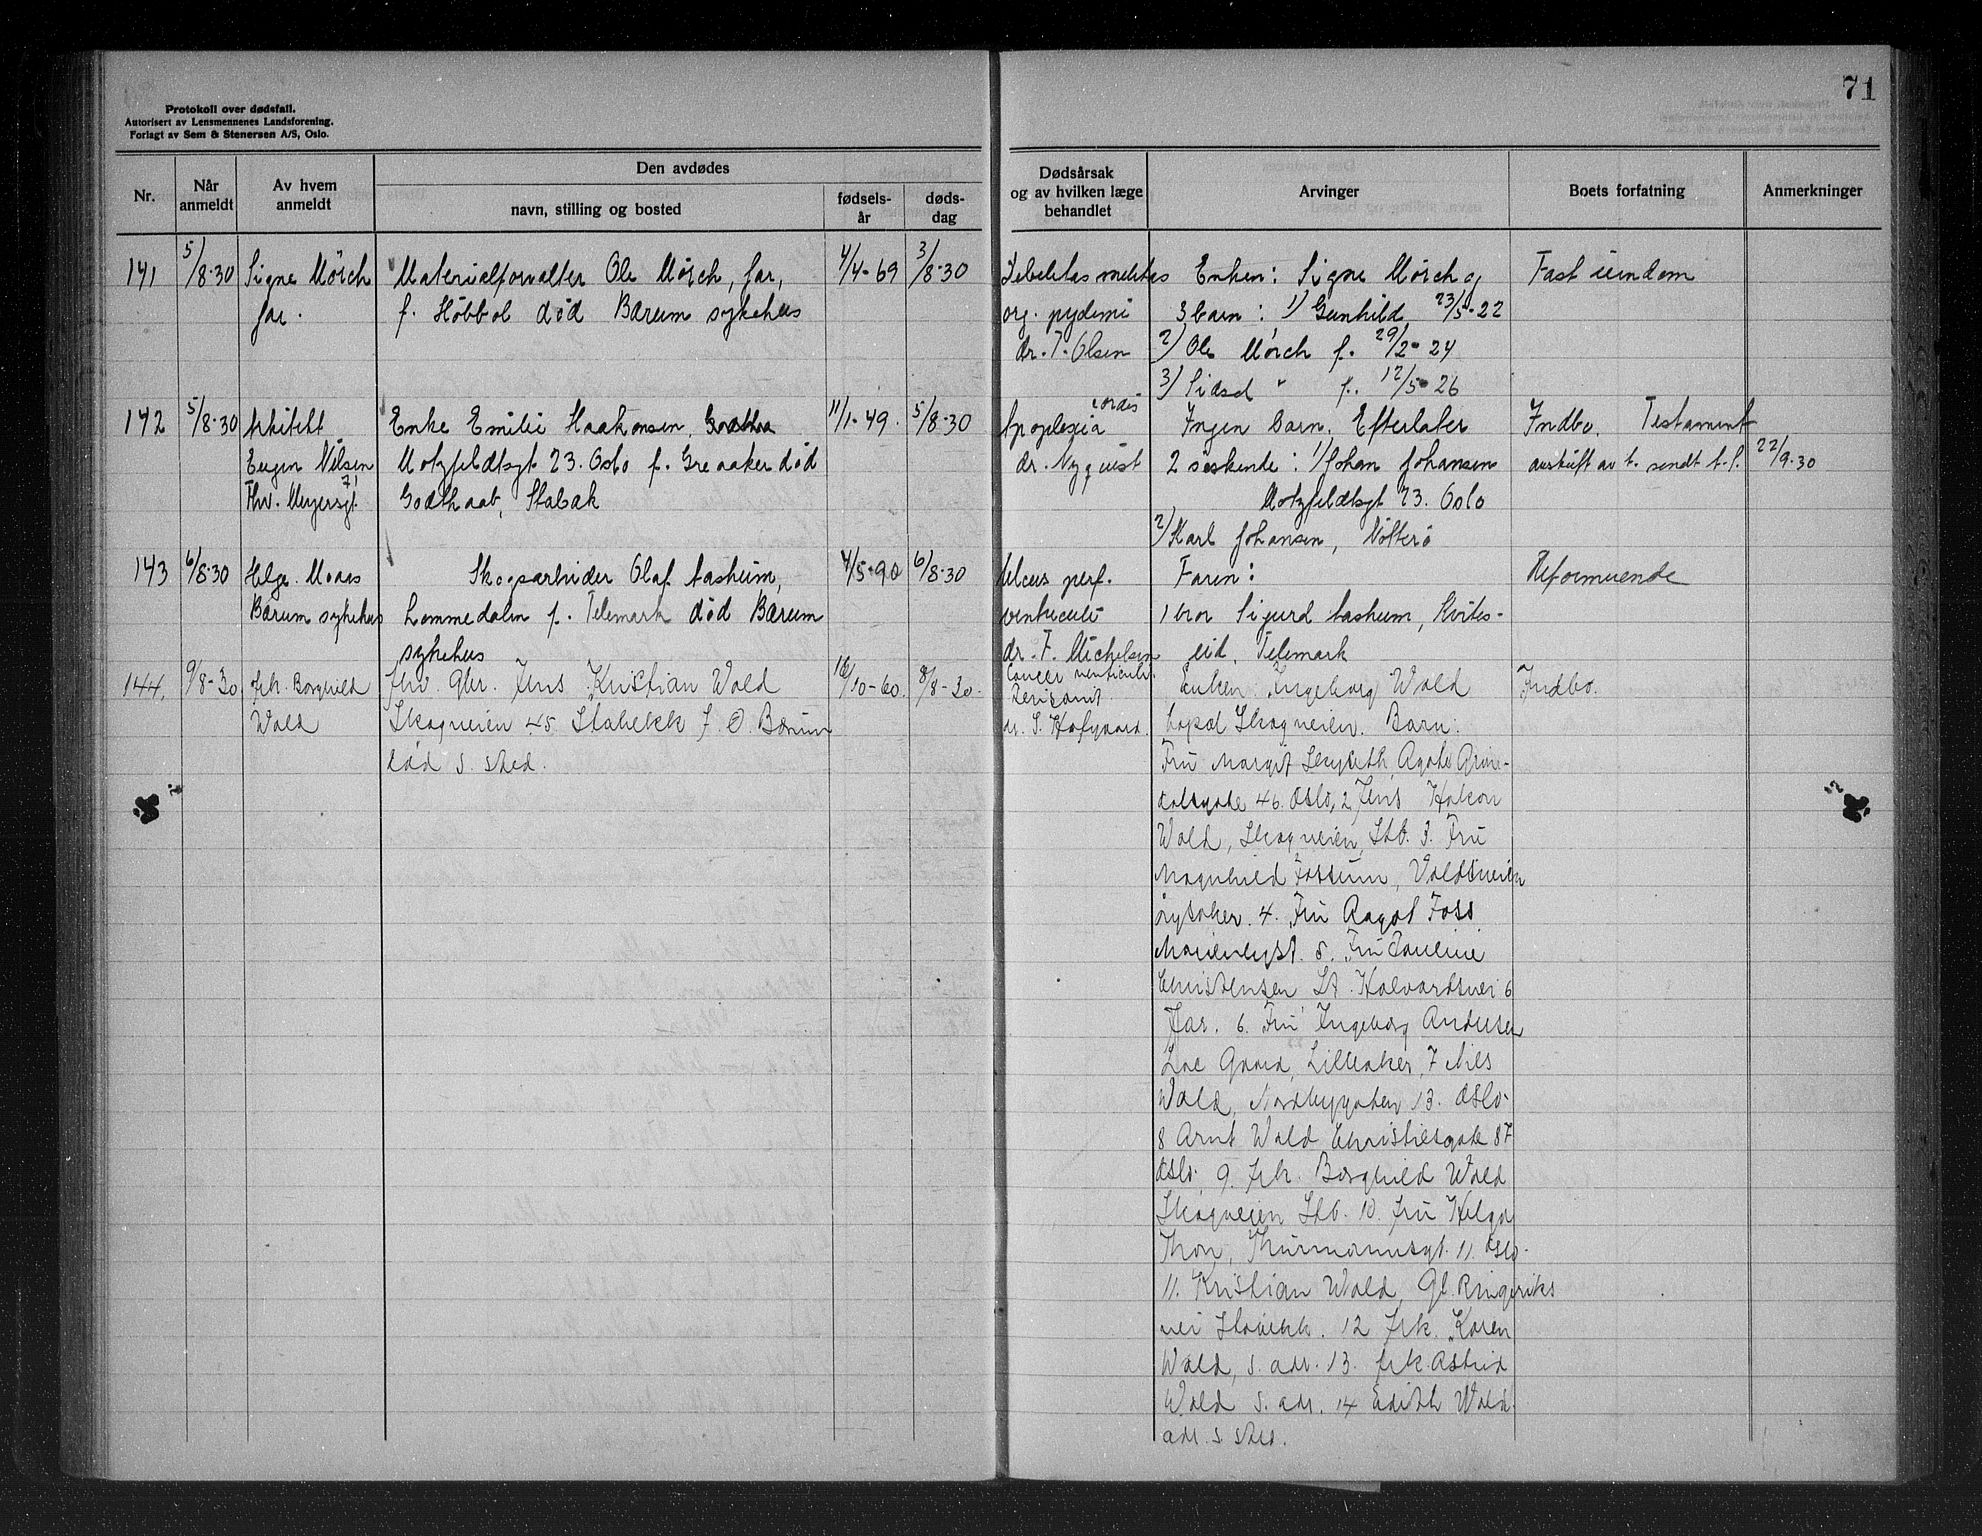 71
Protokoll over dødsfall.
Autorisert av Lensmennenes Landsforening.
Forlagt av Sem & Stenersen A/S, Oslo.
Nr.
Når anmeldt
Av hvem anmeldt
Den avdødes
navn, stilling og bosted
fødsels-år
døds-dag
Dødsårsak og av hvilken læge behandlet
Arvinger
Boets forfatning
Anmerkninger
141
5/8-30
Signe Mörch
Jar.
Materialforvalter Ole Mörch, Jar,
f. Höbböl död Bærum sykehus
4/4-69
3/8-30
org.
dr. T. Olsen
Enken: Signe Mörch og
3 barn: 1/ Gunhild 23/5-22
2/ Ole Mörch f. 29/2-24
3/ Sidsel " f. 12/5-26
Fast eiendom
142
5/8-30
Arkitekt
Eugen Nilsen
Thv. Meyersgt. 71
Enke Emilie Haakonsen,
Motzfeldtsgt 23. Oslo f. Greaaker död
Godthaab, Stabæk
11/1-49.
5/8-30
Apoplexia cordis
dr. Nyquist
Ingen barn. Efterlater
2 söskende: 1/ Johan Johansen
Motzfeldtsgt 23. Oslo
2/ Karl Johansen, Nötterö
Indbo. Testament
avskrift av t. sendt t. S.
22/9-30
143
6/8-30
Helge Moaas
Bærum sykehus
Skogsarbeider Olaf Aasheim,
Lommedalen f. Telemark död Bærum
sykehus
4/5-90
6/8-30
Ulcus perf.
ventriculi
dr. F. Michelsen
Faren:
1 bror Sigurd Aasheim, Kvites-
eid, Telemark
Uformuende
144,
9/8-30
frk. Borghild
Wold
fhv. gbr. Jens Kristian Wold
Skogveien 45 Stabekk f. Ø. Bærum
död s. sted.
16/10-60.
8/8-30.
Cancer ventriculi.
dr. S. Hofgaard.
Enken Ingeborg Wold
Skogveien. Barn:
Fru Margit Agate Grøn-
dalsgate 46. Oslo, 2 Jens Hakon
Wold, Skogveien, Stb. 3. Fru
Magnhild Fossum, Voldsveien
Øysoker. 4. Fru Ragot Foss
Marienlyst. 5. Fru Pauline
Christensen St. Halvardsvei 6
Jar. 6. Fru Ingeborg Andersen
Gaard, Lilleaker, 7 Nils
Wold, Nordbyggaten 13. Oslo-
8 Arnt Wold Christiesgate 87
Oslo. 9. frk. Borghild Wold
Skogveien Stb. 10. fru Helga
Thon, Thurmannsgt. 11. Oslo-
11. Kristian Wold, Gl. Ringeriks
vei Stabekk. 12 frk. Karen
Wold, s. adr. 13. frk. Astrid
Wold s. adr. 14 Edith Wold.
adr. s. sted.